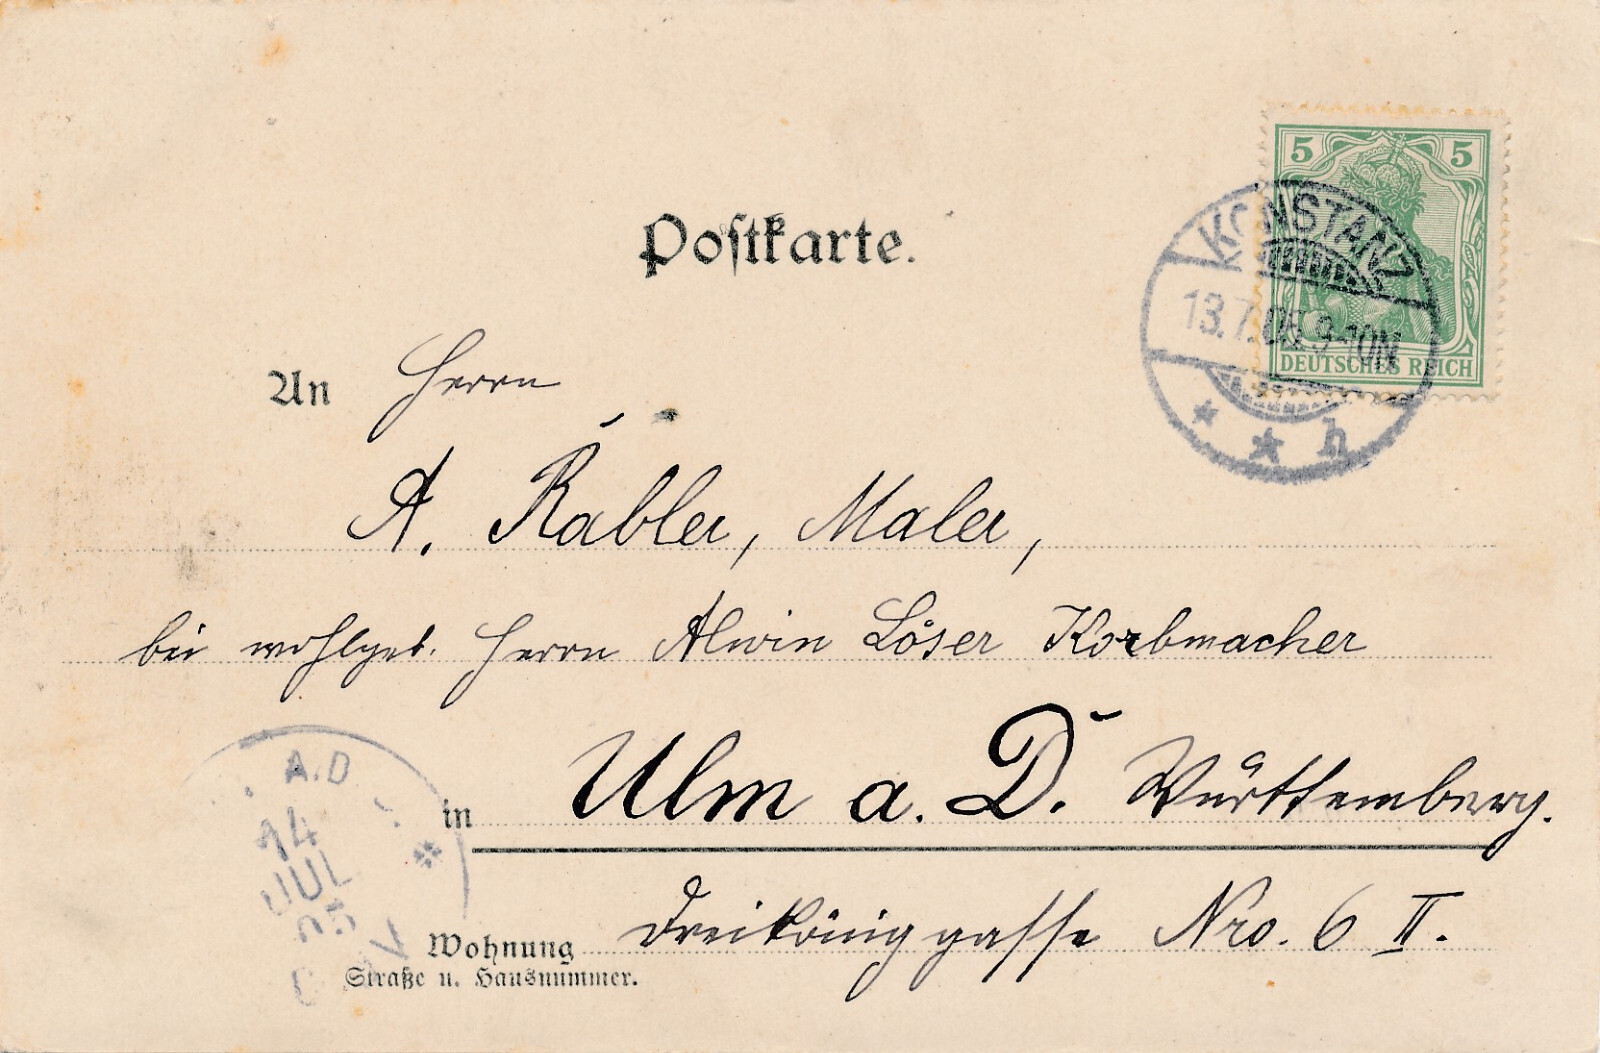 Postkarte.
5 5
DEUTSCHES REICH
KONSTANZ
13.7.05.9-10N
* * h
An Herrn
A. Räbler, Maler,
bei wohlgeb. Herrn Alwin Löser Korbmacher
in Ulm a. D. Württemberg.
Wohnung Dreiköniggasse Nro. 6 II.
Straße u. Hausnummer.
A.D
14
JUL
05